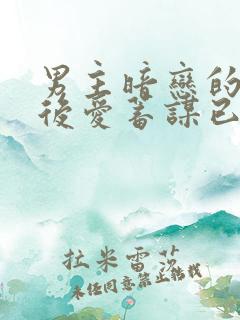 男主暗戀的
後愛蓄謀已
拉米雷茨
未經同意禁止轉載